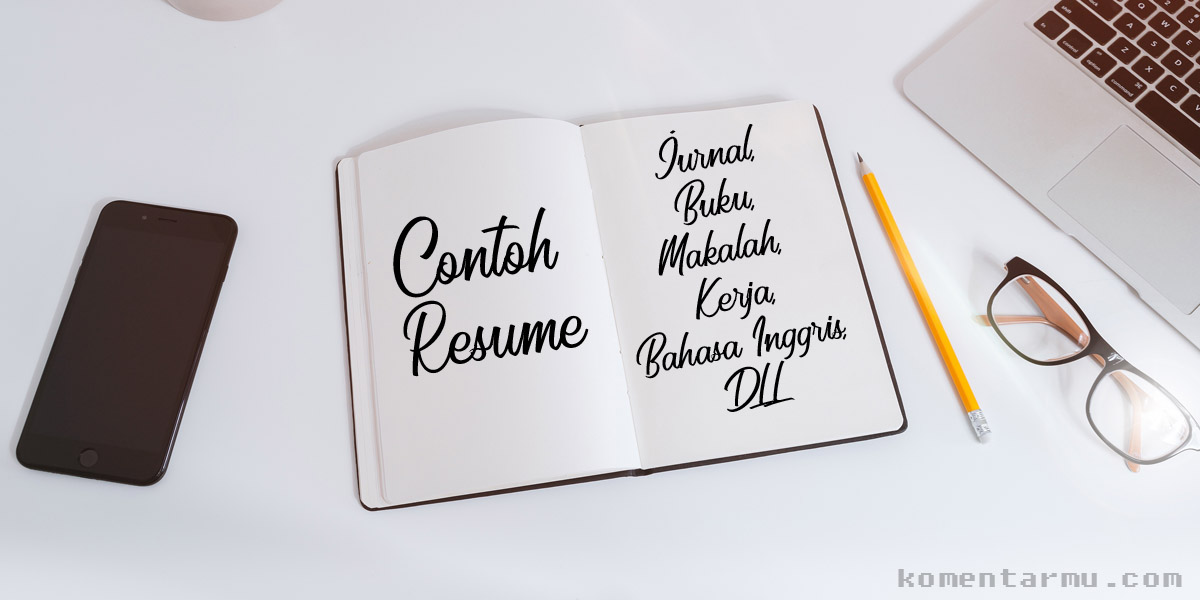 Contoh
Resume
Jurnal,
Buku,
Makalah,
Kerja,
Bahasa Inggris,
DLL
komentarmu.com